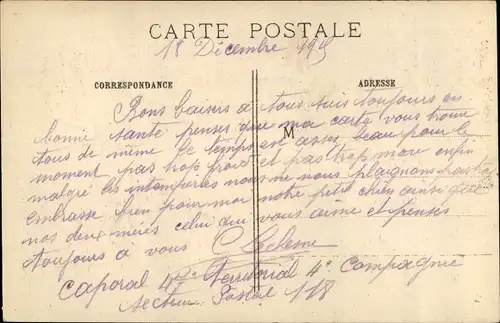 CARTE POSTALE
18 Décembre 191
CORRESPONDANCE ADRESSE
Bons baisers à tous suis toujours en
bonne santé penses que ma carte vous trouve
M
tous de même le temps est asses beau pour le
moment pas trop froid et pas trop mau enfin
malgré les intemperies nous ne nous plaignons pas trop
embrasse bien pour moi notre petit chien ainsi que
nos deux mères celui qui vous aime et penses
toujours à vous
Caporal Territorial 4e Compagnie
Secteur Postal 118